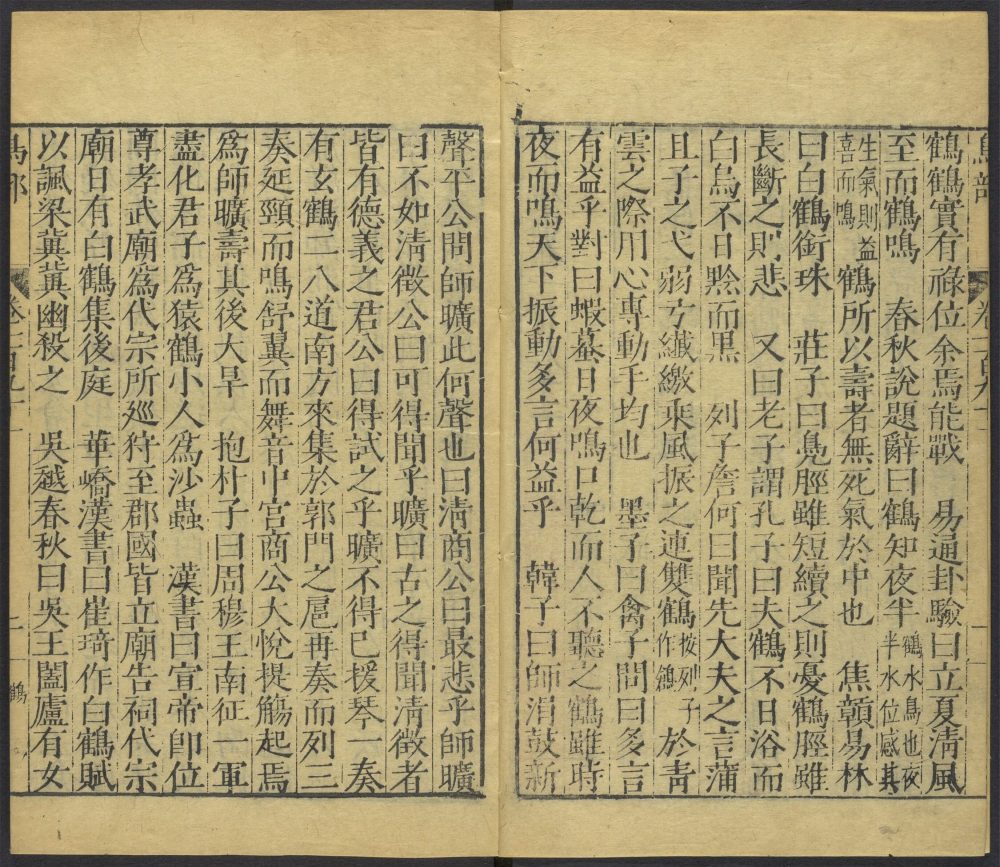 鳥部
鶴鶴實有祿位余焉能戰　易通卦驗曰立夏淸風
至而鶴鳴　春秋說題辭曰鶴知夜半鶴水鳥也夜半水位感其
生氣則益喜而鳴鶴所以壽者無死氣於中也　焦贛易林
曰白鶴銜珠　莊子曰鳬脛雖短續之則憂鶴脛雖
長斷之則悲　又曰老子謂孔子曰夫鶴不日浴而
白烏不日黔而黑　列子詹何曰聞先大夫之言蒲
且子之弋弱弓纎繳乘風振之連雙鶴按列子作鶬於靑
雲之際用心專動手均也　墨子曰禽子問曰多言
有益乎對曰蝦蟇日夜鳴口乾而人不聽之鶴雖時
夜而鳴天下振動多言何益乎　韓子曰師涓鼓新
聲平公問師曠此何聲也曰淸商公曰最悲乎師曠
曰不如淸徵公曰可得聞乎曠曰古之得聞淸徵者
皆有德義之君公曰得試之乎曠不得已援琴一奏
有玄鶴二八道南方來集於郭門之扈再奏而列三
奏延頸而鳴舒翼而舞音中宮商公大悅提觴起焉
爲師曠壽其後大旱　抱朴子曰周穆王南征一軍
盡化君子爲猿鶴小人爲沙蟲　漢書曰宣帝卽位
尊孝武廟爲代宗所巡狩至郡國皆立廟告祠代宗
廟日有白鶴集後庭　華嶠漢書曰崔琦作白鶴賦
以諷梁冀冀幽殺之　吳越春秋曰吳王闔廬有女
鳥部　鶴